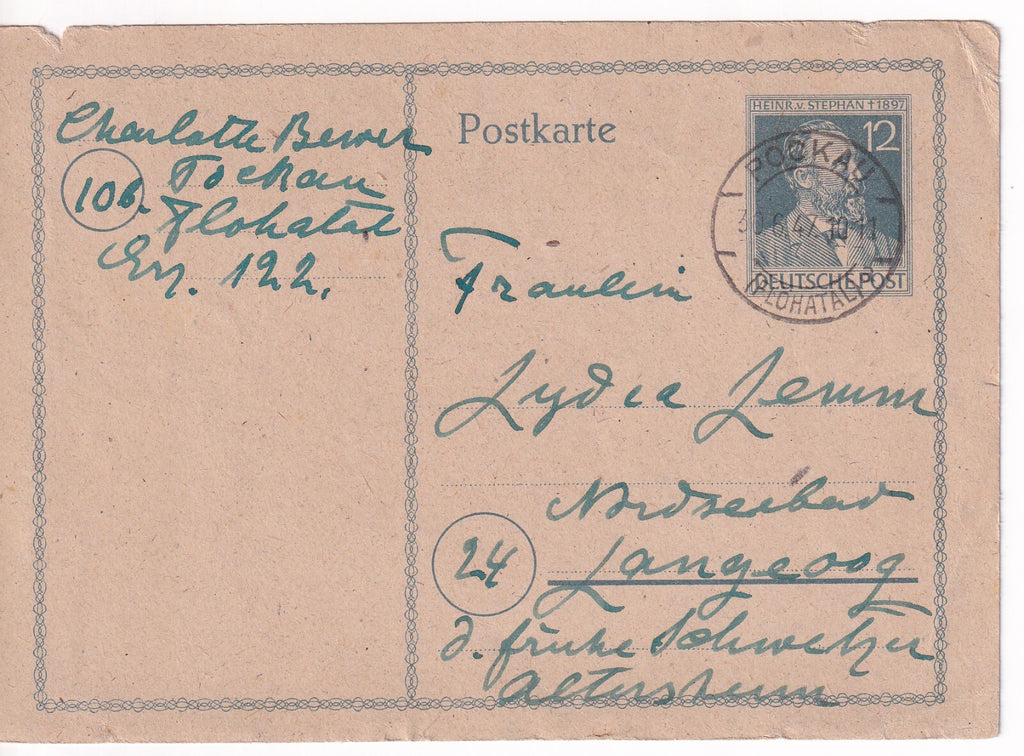 Charlotte Bewer
(10b. Pockau
Flöhatal
Erz. 122.
Postkarte
HEINR.V. STEPHAN †1897
12
DEUTSCHE POST
POCKAU
30.6.47.10-11
(FLÖHATAL)
Fräulein
Lydia Lemm
Nordseebad
24
Langeoog
Schwetzer
Altersheim